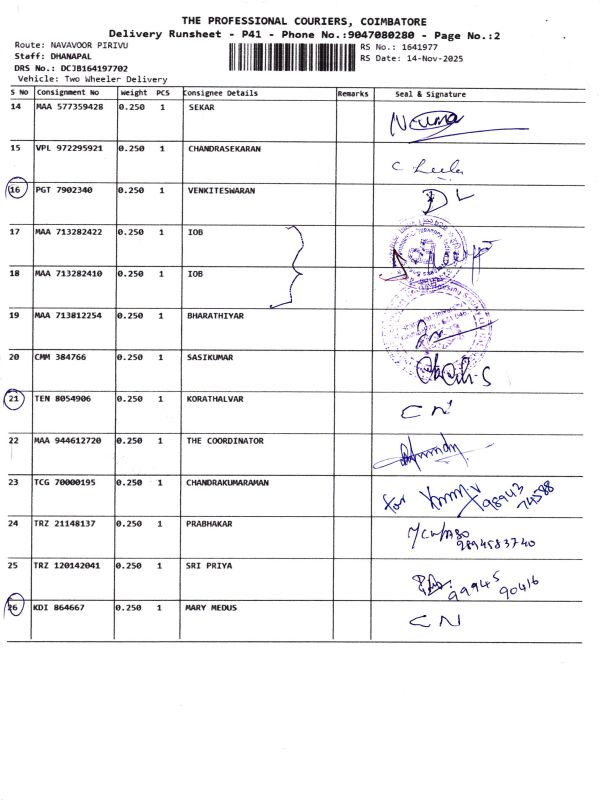 THE PROFESSIONAL COURIERS, COIMBATORE
Delivery Runsheet - P41 - Phone No.:9047080280 - Page No.:2
Route: NAVAVOOR PIRIVU RS No.: 1641977
Staff: DHANAPAL RS Date: 14-Nov-2025
DRS No.: DCJB164197702
Vehicle: Two Wheeler Delivery
S No Consignment No Weight PCS Consignee Details Remarks Seal & Signature
14 MAA 577359428 0.250 1 SEKAR
15 VPL 972295921 0.250 1 CHANDRASEKARAN C Leela
16 PGT 7902340 0.250 1 VENKITESWARAN DL
17 MAA 713282422 0.250 1 IOB
18 MAA 713282410 0.250 1 IOB
19 MAA 713812254 0.250 1 BHARATHIYAR
20 CMM 384766 0.250 1 SASIKUMAR
21 TEN 8054906 0.250 1 KORATHALVAR CN
22 MAA 944612720 0.250 1 THE COORDINATOR
23 TCG 70000195 0.250 1 CHANDRAKUMARAMAN for 98943
74588
24 TRZ 21148137 0.250 1 PRABHAKAR
2894583740
25 TRZ 120142041 0.250 1 SRI PRIYA 99945
90416
26 KDI 864667 0.250 1 MARY MEDUS CN